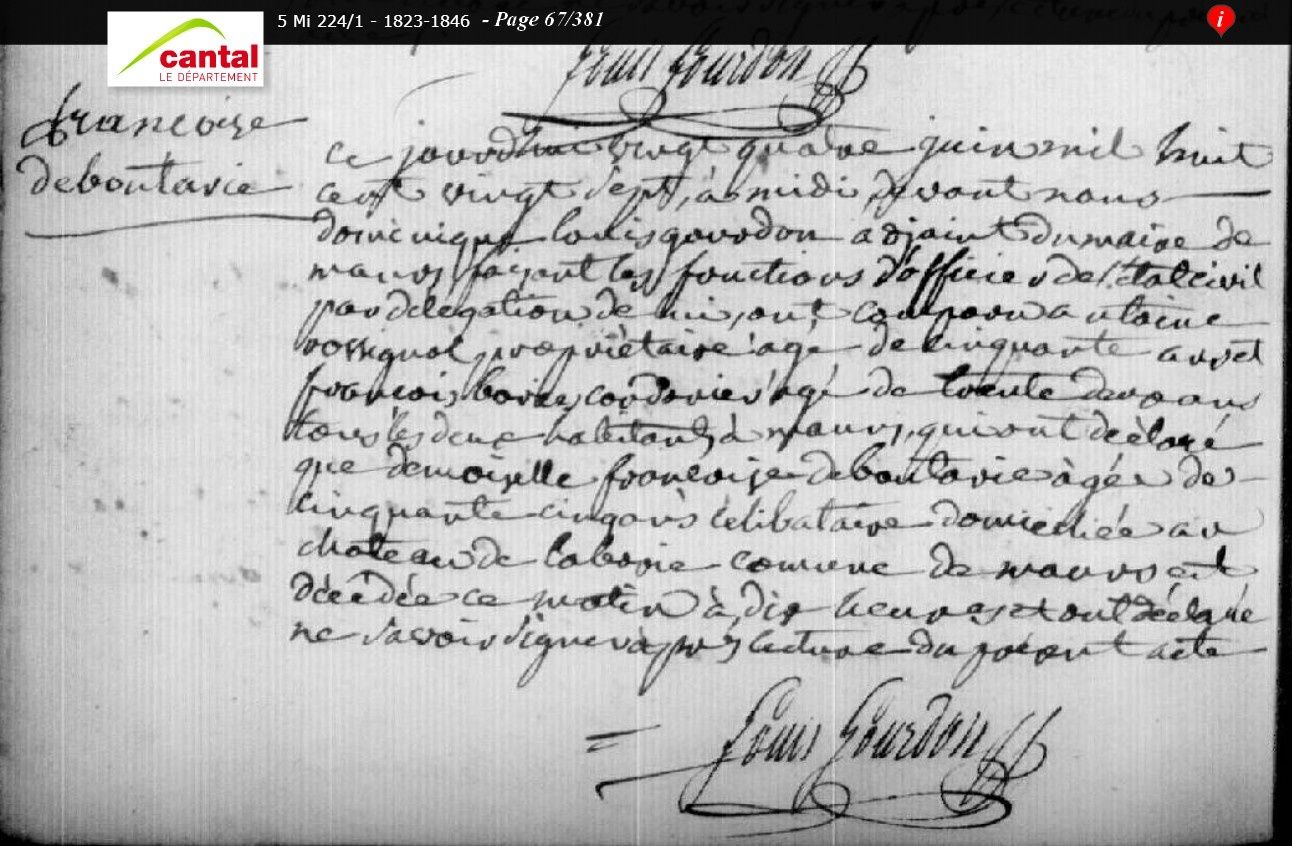 5 Mi 224/1 - 1823-1846 - Page 67/381
i
cantal
LE DÉPARTEMENT
Louis Gourdon
francoise
deboutarie
ce jourdhui vingt quatre juin mil huit
cent vingt sept, à midi, devant nous
dominique louis gourdon adjoint du maire de
maurs faisant les fonctions d'officier de l'état civil
par delegation de lui, ont comparu antoine
rossignol, propriètaire agé de cinquante ans et
francois cordonier agé de trente deux ans
tous les deux habitants à maurs, qui ont déclaré
que demoiselle francoise deboutarie àgée de
cinquante cinq ans célibataire domiciliée au
chateau de laborie comune de maurs est
décédée ce matin à dix heures et ont déclaré
ne savoir signer après lecture du présent acte
Louis Gourdon